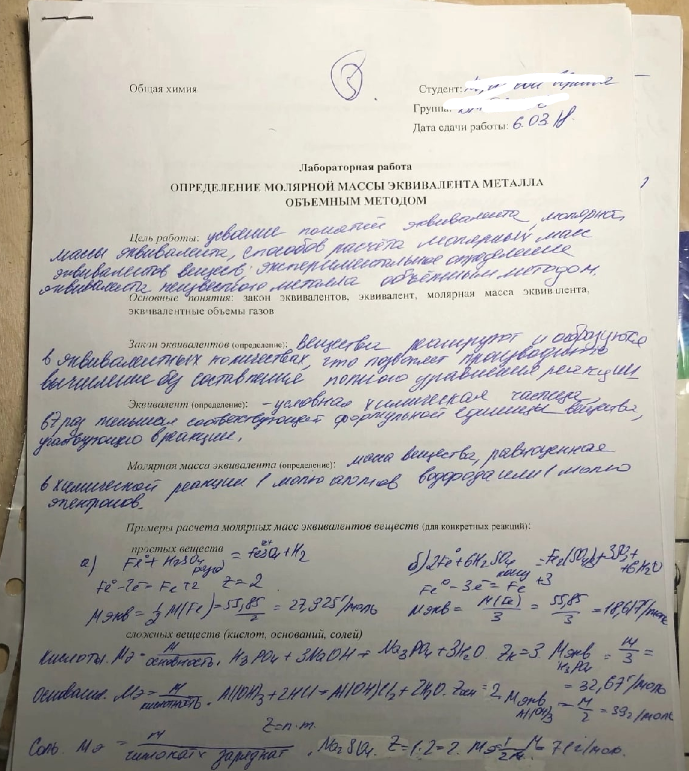 Общая химия
Студент:
Группа:
Дата сдачи работы: 6.03.18.
Лабораторная работа
ОПРЕДЕЛЕНИЕ МОЛЯРНОЙ МАССЫ ЭКВИВАЛЕНТА МЕТАЛЛА
ОБЪЕМНЫМ МЕТОДОМ
Цель работы: усвоение понятий эквивалента, молярная
массы эквивалента, способов расчёта молярных масс
эквивалентов веществ; экспериментальное определение
эквивалента неизвестного металла объёмным методом.
Основные понятия: закон эквивалентов, эквивалент, молярная масса эквивалента,
эквивалентные объемы газов
Закон эквивалентов (определение): вещества реагируют и образуются
в эквивалентных количествах, что позволяет производить
вычисление без составления полного уравнения реакции
Эквивалент (определение): - условная химическая частица,
в Z раз меньшая соответствующей формульной единицы вещества,
участвующего в реакции.
Молярная масса эквивалента (определение): масса вещества, равноценная
в химической реакции 1 молю атомов водорода или 1 молю
электронов.
Примеры расчета молярных масс эквивалентов веществ (для конкретных реакций):
простых веществ
а) Fe⁰ + H₂SO₄ разб = Fe²⁺SO₄ + H₂ б) 2Fe⁰ + 6H₂SO₄ конц = Fe₂(SO₄)₃ + 3SO₂ + 6H₂O
Fe⁰ - 2e = Fe+2 Z = 2 Fe⁰ - 3e = Fe+3
Mэкв = 1/2 M(Fe) = 55,85/2 = 27,925 г/моль Mэкв = M(Fe)/3 = 55,85/3 = 18,617 г/моль
сложных веществ (кислот, оснований, солей)
Кислоты. Mэ = M/основность. H₃PO₄ + 3NaOH = Na₃PO₄ + 3H₂O Zк = 3. Mэкв H₃PO₄ = M/3 =
= 32,67 г/моль
Основания. Mэ = M/кислотность. Al(OH)₃ + 2HCl = Al(OH)Cl₂ + 2H₂O. Zосн = 2 Mэкв Al(OH)₃ = M/2 = 39 г/моль
Z = n·m.
Соль. Mэ = M/числокат × заряднат. Na₂SO₄. Z = 1·2 = 2. Mэ = 1/2 M = 71 г/мол.